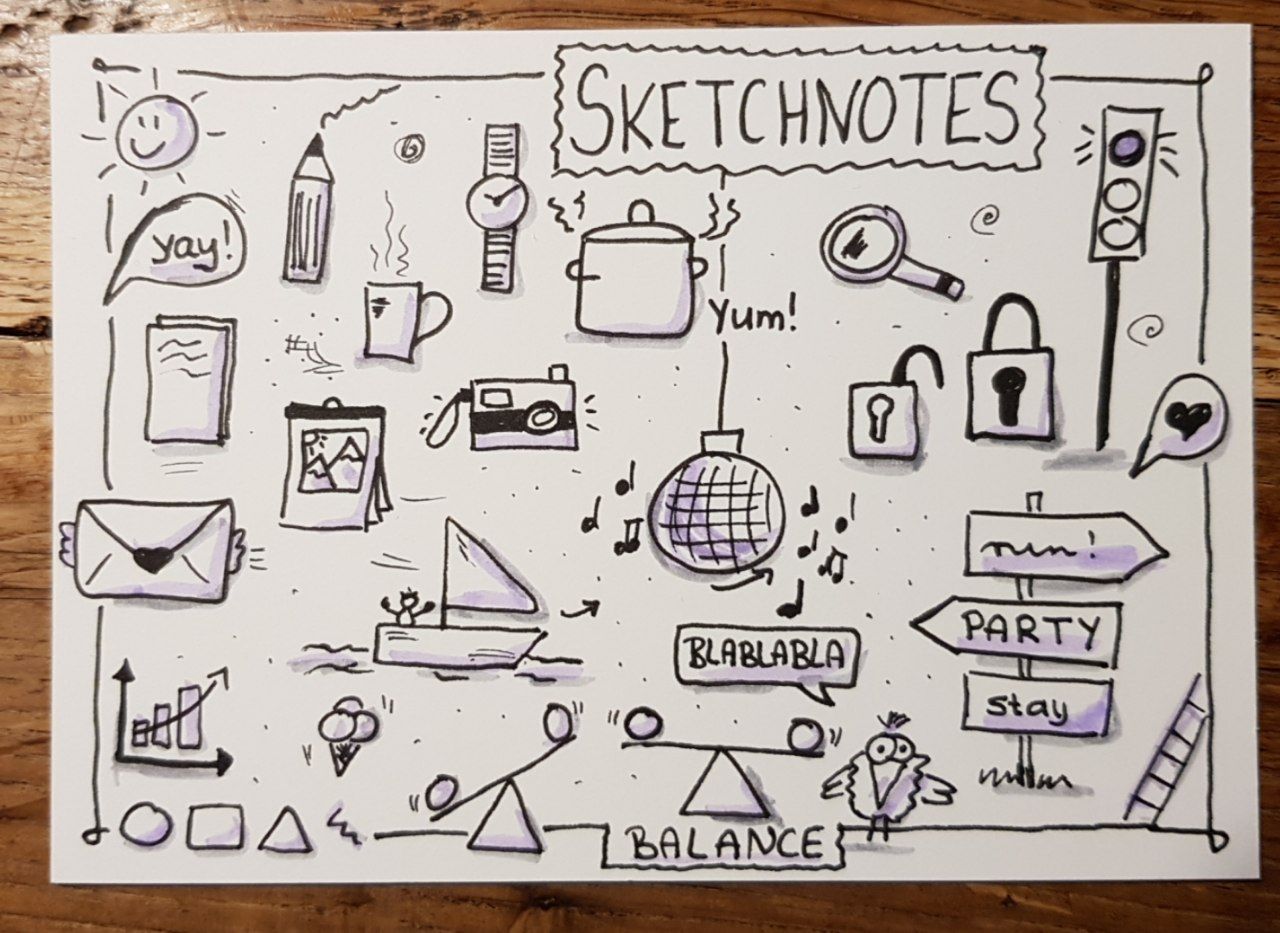 SKETCHNOTES
yay!
Yum!
run!
PARTY
BLABLABLA
stay
BALANCE